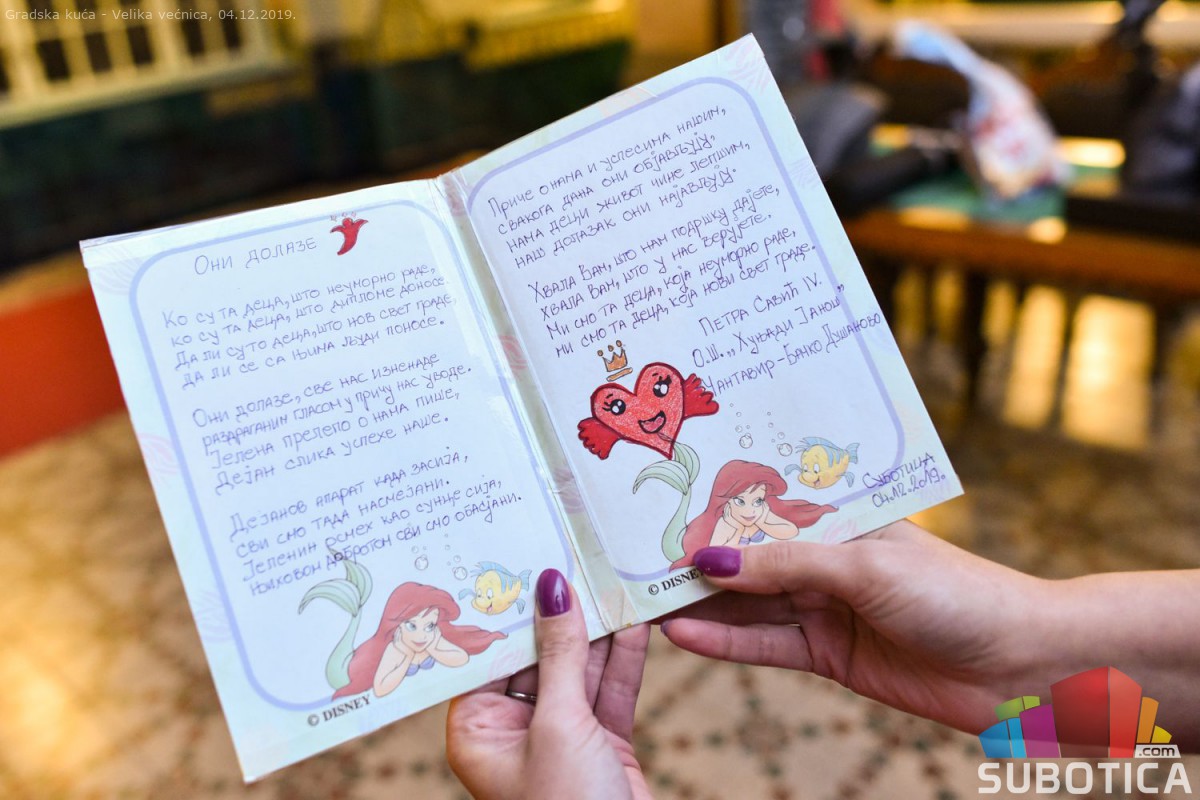 Gradska kuća - Velika većnica, 04.12.2019.
Они долазе
Ко су та деца, што неуморно раде,
ко су та деца, што дипломе доносе.
Да ли су то деца, што нов свет граде,
да ли се са њима људи поносе.
Они долазе, све нас изненаде
раздраганим гласом у причу нас уводе.
Јелена прелепо о нама пише,
Дејан слика успехе наше.
Дејанов апарат када засија,
сви смо тада насмејани.
Јеленин осмех као сунце сија,
њиховом добротом сви смо обасјани.
© DISNEY
Приче о нама и успесима нашим,
свакога дана они објављују,
нама деци живот чине лепшим,
наш долазак они најављују.
Хвала вам, што нам подршку дајете,
хвала вам, што у нас верујете.
Ми смо та деца, која неуморно раде,
ми смо та деца, која нови свет граде.
Петра Савић IV.
О.Ш. „Хуњади Јанош"
Чантавир-Бачко Душаново
Суботица
04.12.2019.
© DISNEY
.com
SUBOTICA